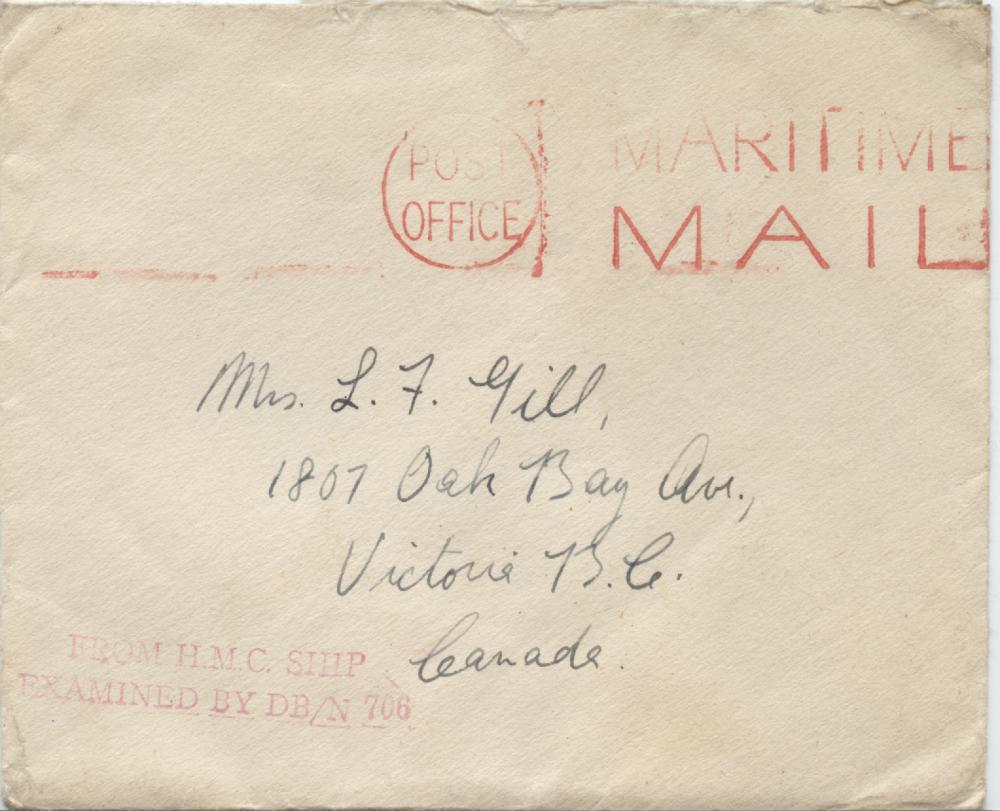 POST OFFICE
MARITIME
MAIL
Mrs. L. F. Gill,
1807 Oak Bay Ave.,
Victoria B.C.
Canada.
FROM H.M.C. SHIP
EXAMINED BY DB/N 706